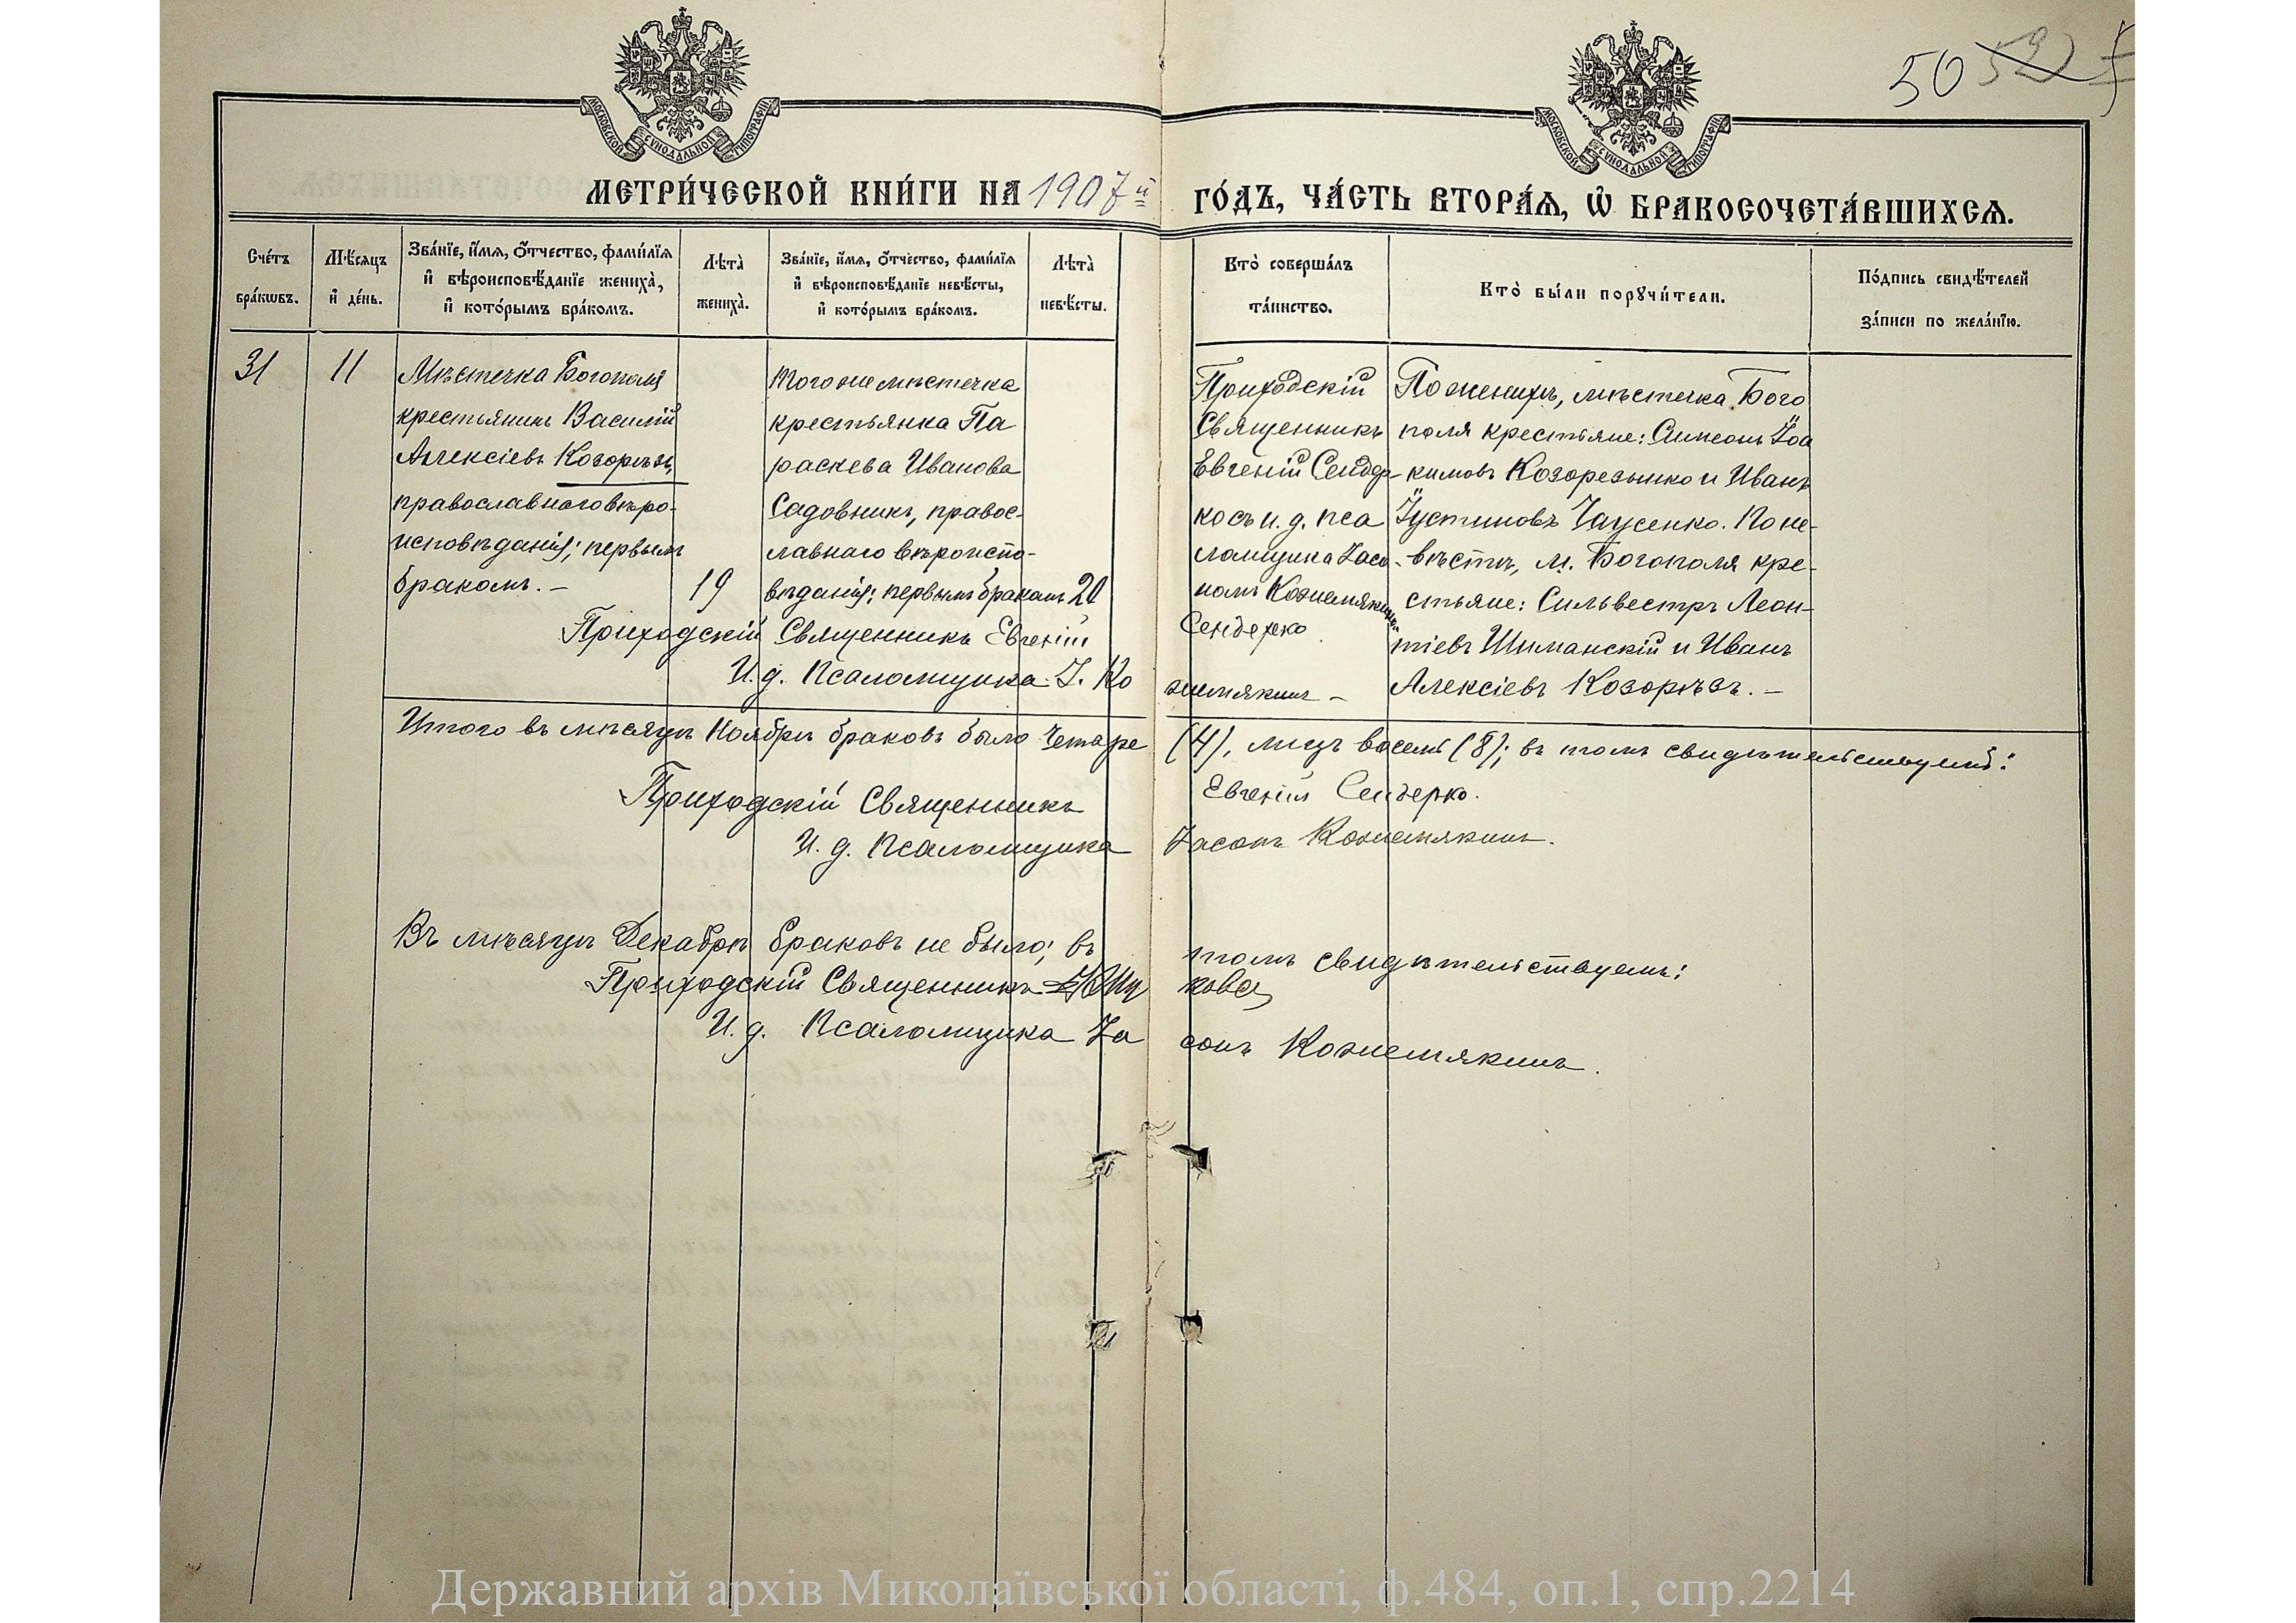 50 52
МОСКОВСКОЙ СУНОДАЛЬНОЙ ТИПОГРАФІИ
МОСКОВСКОЙ СУНОДАЛЬНОЙ ТИПОГРАФІИ
МЕТРИ́ЧЕСКОЙ КНИ́ГИ НА 1907й ГО́ДЪ, ЧА́СТЬ ВТОРА́Ѧ, Ѽ БРАКОСОЧЕТА́ВШИХСѦ.
Сче́тъ бра́кѡвъ.
Мѣ́сѧцъ и҆ де́нь.
Зва́нїе, и҆́мѧ, о҆́тчество, фами́лїѧ
и҆ вѣроисповѣ́данїе жениха̀,
и҆ кото́рымъ бра́комъ.
Лѣта̀ жениха̀.
Зва́нїе, и҆́мѧ, о҆́тчество, фами́лїѧ
и҆ вѣроисповѣ́данїе невѣ́сты,
и҆ кото́рымъ бра́комъ.
Лѣта̀ невѣ́сты.
Кто̀ соверша́лъ
та́инство.
Кто̀ бы́ли порꙋчи́тели.
По́дпись свидѣ́телей
за́писи по жела́нїю.
31
11
Мѣстечка Богополя
крестьянинъ Василій
Алексіевъ Козорѣзъ,
православнаго вѣро-
исповѣданія; первымъ
бракомъ. –
19
Того же мѣстечка
крестьянка Па
раскева Иванова
Садовникъ, правос-
лавнаго вѣроиспо-
вѣданія; первымъ бракомъ
20
Приходскій
Священникъ
Евгеній Сендер-
ко съ и. д. пса
ломщика Іасо-
номъ Кожемякинымъ
Сендерко
По женихѣ, мѣстечка Бого
поля крестьяне: Симеонъ Іоа
кимовъ Козорезенко и Иванъ
Іустиновъ Чаусенко. По не-
вѣстѣ, м. Богополя кре-
стьяне: Сильвестръ Леон-
тіевъ Шиманскій и Иванъ
Алексіевъ Козорѣзъ. –
Приходскій Священникъ Евгеній
И. д. Псаломщика І. Ко жемякинъ –
Итого въ мѣсяцѣ Ноябрѣ браковъ было четыре (4), лицъ восемь (8); въ томъ свидѣтельствуемъ:
Приходскій Священникъ Евгеній Сендерко.
И. д. Псаломщика Іасонъ Кожемякинъ.
Въ мѣсяцѣ Декабрѣ браковъ не было; въ томъ свидѣтельствуемъ:
Приходскій Священникъ
И. д. Псаломщика Іа сонъ Кожемякинъ.
Державний архів Миколаївської області, ф.484, оп.1, спр.2214